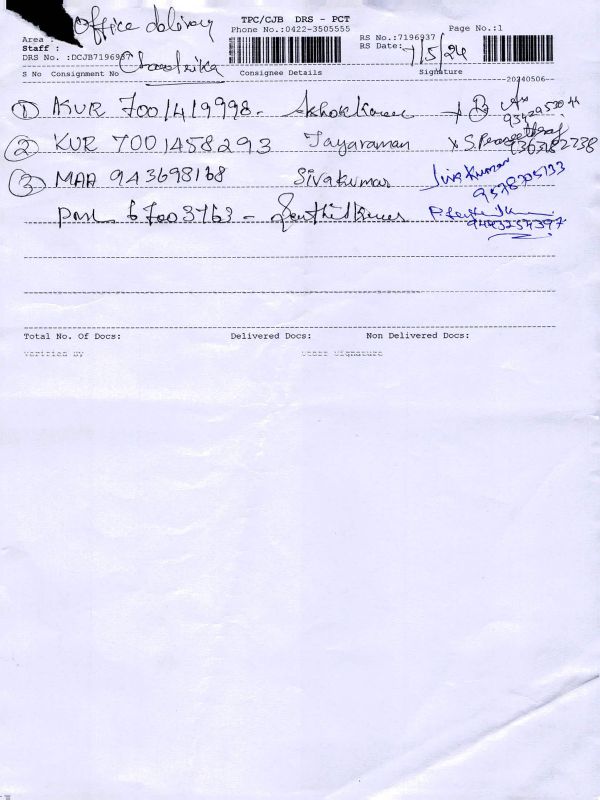 Office delivery
TPC/CJB DRS - PCT
Phone No.:0422-3505555
Page No.:1
Area :
RS No.:7196937
Staff :
RS Date: 7/5/24
DRS No. :DCJB7196937
Chandrika
S No Consignment No Consignee Details Signature
20240506
① KUR 7001419998 - Ashokkumar
② KUR 7001458293 Jayaraman
③ MAA 943698168 Sivakumar Sivakumar
67003763 - Senthilkumar
Total No. Of Docs: Delivered Docs: Non Delivered Docs:
Verified By Staff Signature